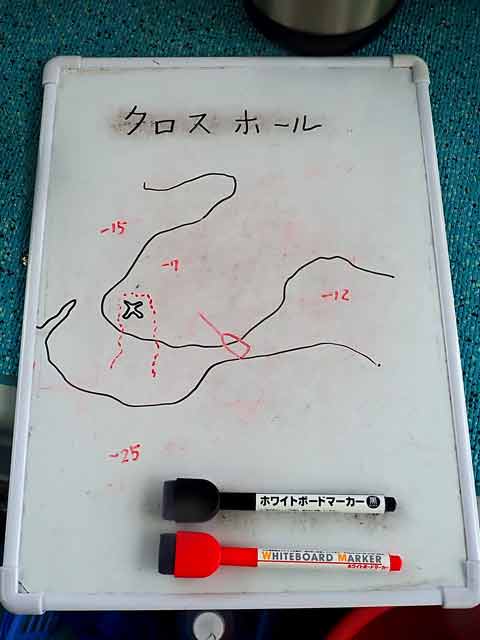 クロス ホール
-15
-7
-12
-25
ホワイトボードマーカー 黒
WHITEBOARD MARKER
ホワイトボードマーカー